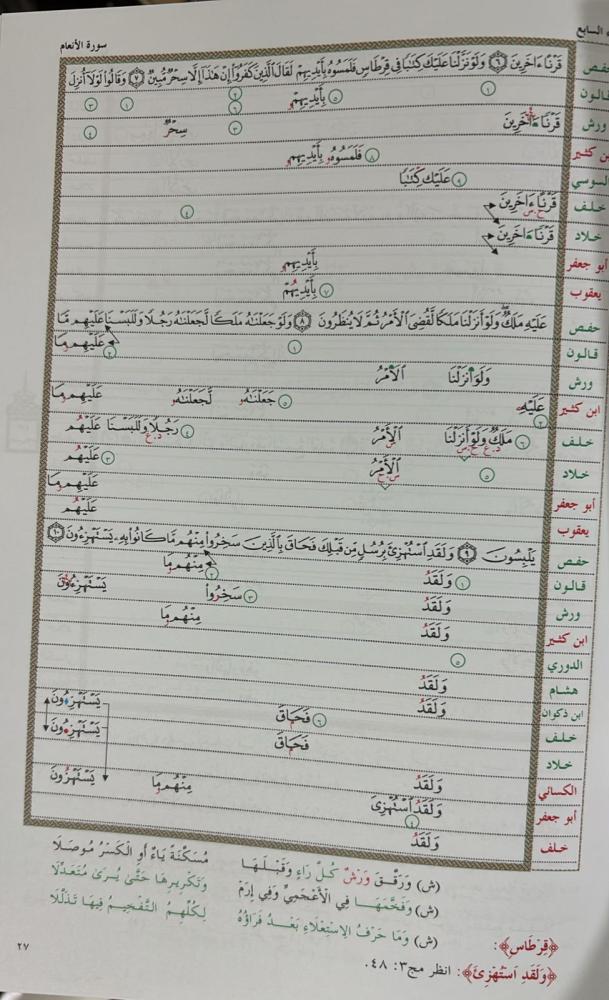 السابع
سورة الأنعام
حفص قَرْنًا ءَاخَرِينَ ٦ وَلَوْ نَزَّلْنَا عَلَيْكَ كِتَٰبًا فِي قِرْطَاسٍ فَلَمَسُوهُ بِأَيْدِيهِمْ لَقَالَ ٱلَّذِينَ كَفَرُوٓا۟ إِنْ هَٰذَآ إِلَّا سِحْرٌ مُّبِينٌ ٧ وَقَالُوا۟ لَوْلَآ أُنزِلَ
قالون بِأَيْدِيهِمُ
ورش قَرْنًا ءَاخَرِينَ سِحْرٌ
ابن كثير فَلَمَسُوهُ بِأَيْدِيهِمُ
السوسي عَلَيْكَ كِتَٰبًا
خلف قَرْنًا ءَاخَرِينَ
خلاد قَرْنًا ءَاخَرِينَ
أبو جعفر بِأَيْدِيهِمُ
يعقوب بِأَيْدِيهُمْ
حفص عَلَيْهِ مَلَكٌ وَلَوْ أَنزَلْنَا مَلَكًا لَّقُضِيَ ٱلْأَمْرُ ثُمَّ لَا يُنظَرُونَ ٨ وَلَوْ جَعَلْنَٰهُ مَلَكًا لَّجَعَلْنَٰهُ رَجُلًا وَلَلَبَسْنَا عَلَيْهِم مَّا
قالون عَلَيْهِم مَّا
ورش وَلَوَ أَنزَلْنَا ٱلَامْرُ
ابن كثير عَلَيْهِ جَعَلْنَٰهُ لَّجَعَلْنَٰهُ عَلَيْهِم مَا
خلف مَلَكٌ وَلَوْ أَنزَلْنَا ٱلْأَمْرُ رَجُلًا وَلَلَبَسْنَا عَلَيْهُم
خلاد ٱلْأَمْرُ عَلَيْهُم
أبو جعفر عَلَيْهِم مَا
يعقوب عَلَيْهُم
حفص يَلْبِسُونَ ٩ وَلَقَدِ ٱسْتُهْزِئَ بِرُسُلٍ مِّن قَبْلِكَ فَحَاقَ بِٱلَّذِينَ سَخِرُوا۟ مِنْهُم مَّا كَانُوا۟ بِهِۦ يَسْتَهْزِءُونَ ١٠
قالون وَلَقَدُ مِنْهُم مَا
ورش وَلَقَدُ سَخِرُوا۟ يَسْتَهْزِءُونَ
ابن كثير وَلَقَدُ مِنْهُم مَا
الدوري
هشام وَلَقَدُ
ابن ذكوان وَلَقَدُ
خلف فَحَاقَ يَسْتَهْزِءُونَ
خلاد فَحَاقَ يَسْتَهْزِءُونَ
الكسائي وَلَقَدُ
أبو جعفر وَلَقَدُ ٱسْتُهْزِيَ مِنْهُم مَا يَسْتَهْزُونَ
خلف وَلَقَدُ
(ش) وَرَقَّقَ وَرْشٌ كُلَّ رَاءٍ وَقَبْلَهَا مُسَكَّنَةً يَاءٌ أَوِ الْكَسْرُ مُوصَلَا
(ش) وَفَخَّمَهَا فِي الْأَعْجَمِيِّ وَفِي إِرَمْ وَتَكْرِيرِهَا حَتَّىٰ يُرَىٰ مُتَعَدِّلَا
﴿قِرْطَاسٍ﴾: (ش) وَمَا حَرْفُ الِاسْتِعْلَاءِ بَعْدُ فَرَاؤُهُ لِكُلِّهِمُ التَّفْخِيمُ فِيهَا تَذَلَّلَا
﴿وَلَقَدِ ٱسْتُهْزِئَ﴾: انظر مج٣: ٤٨.
٢٧